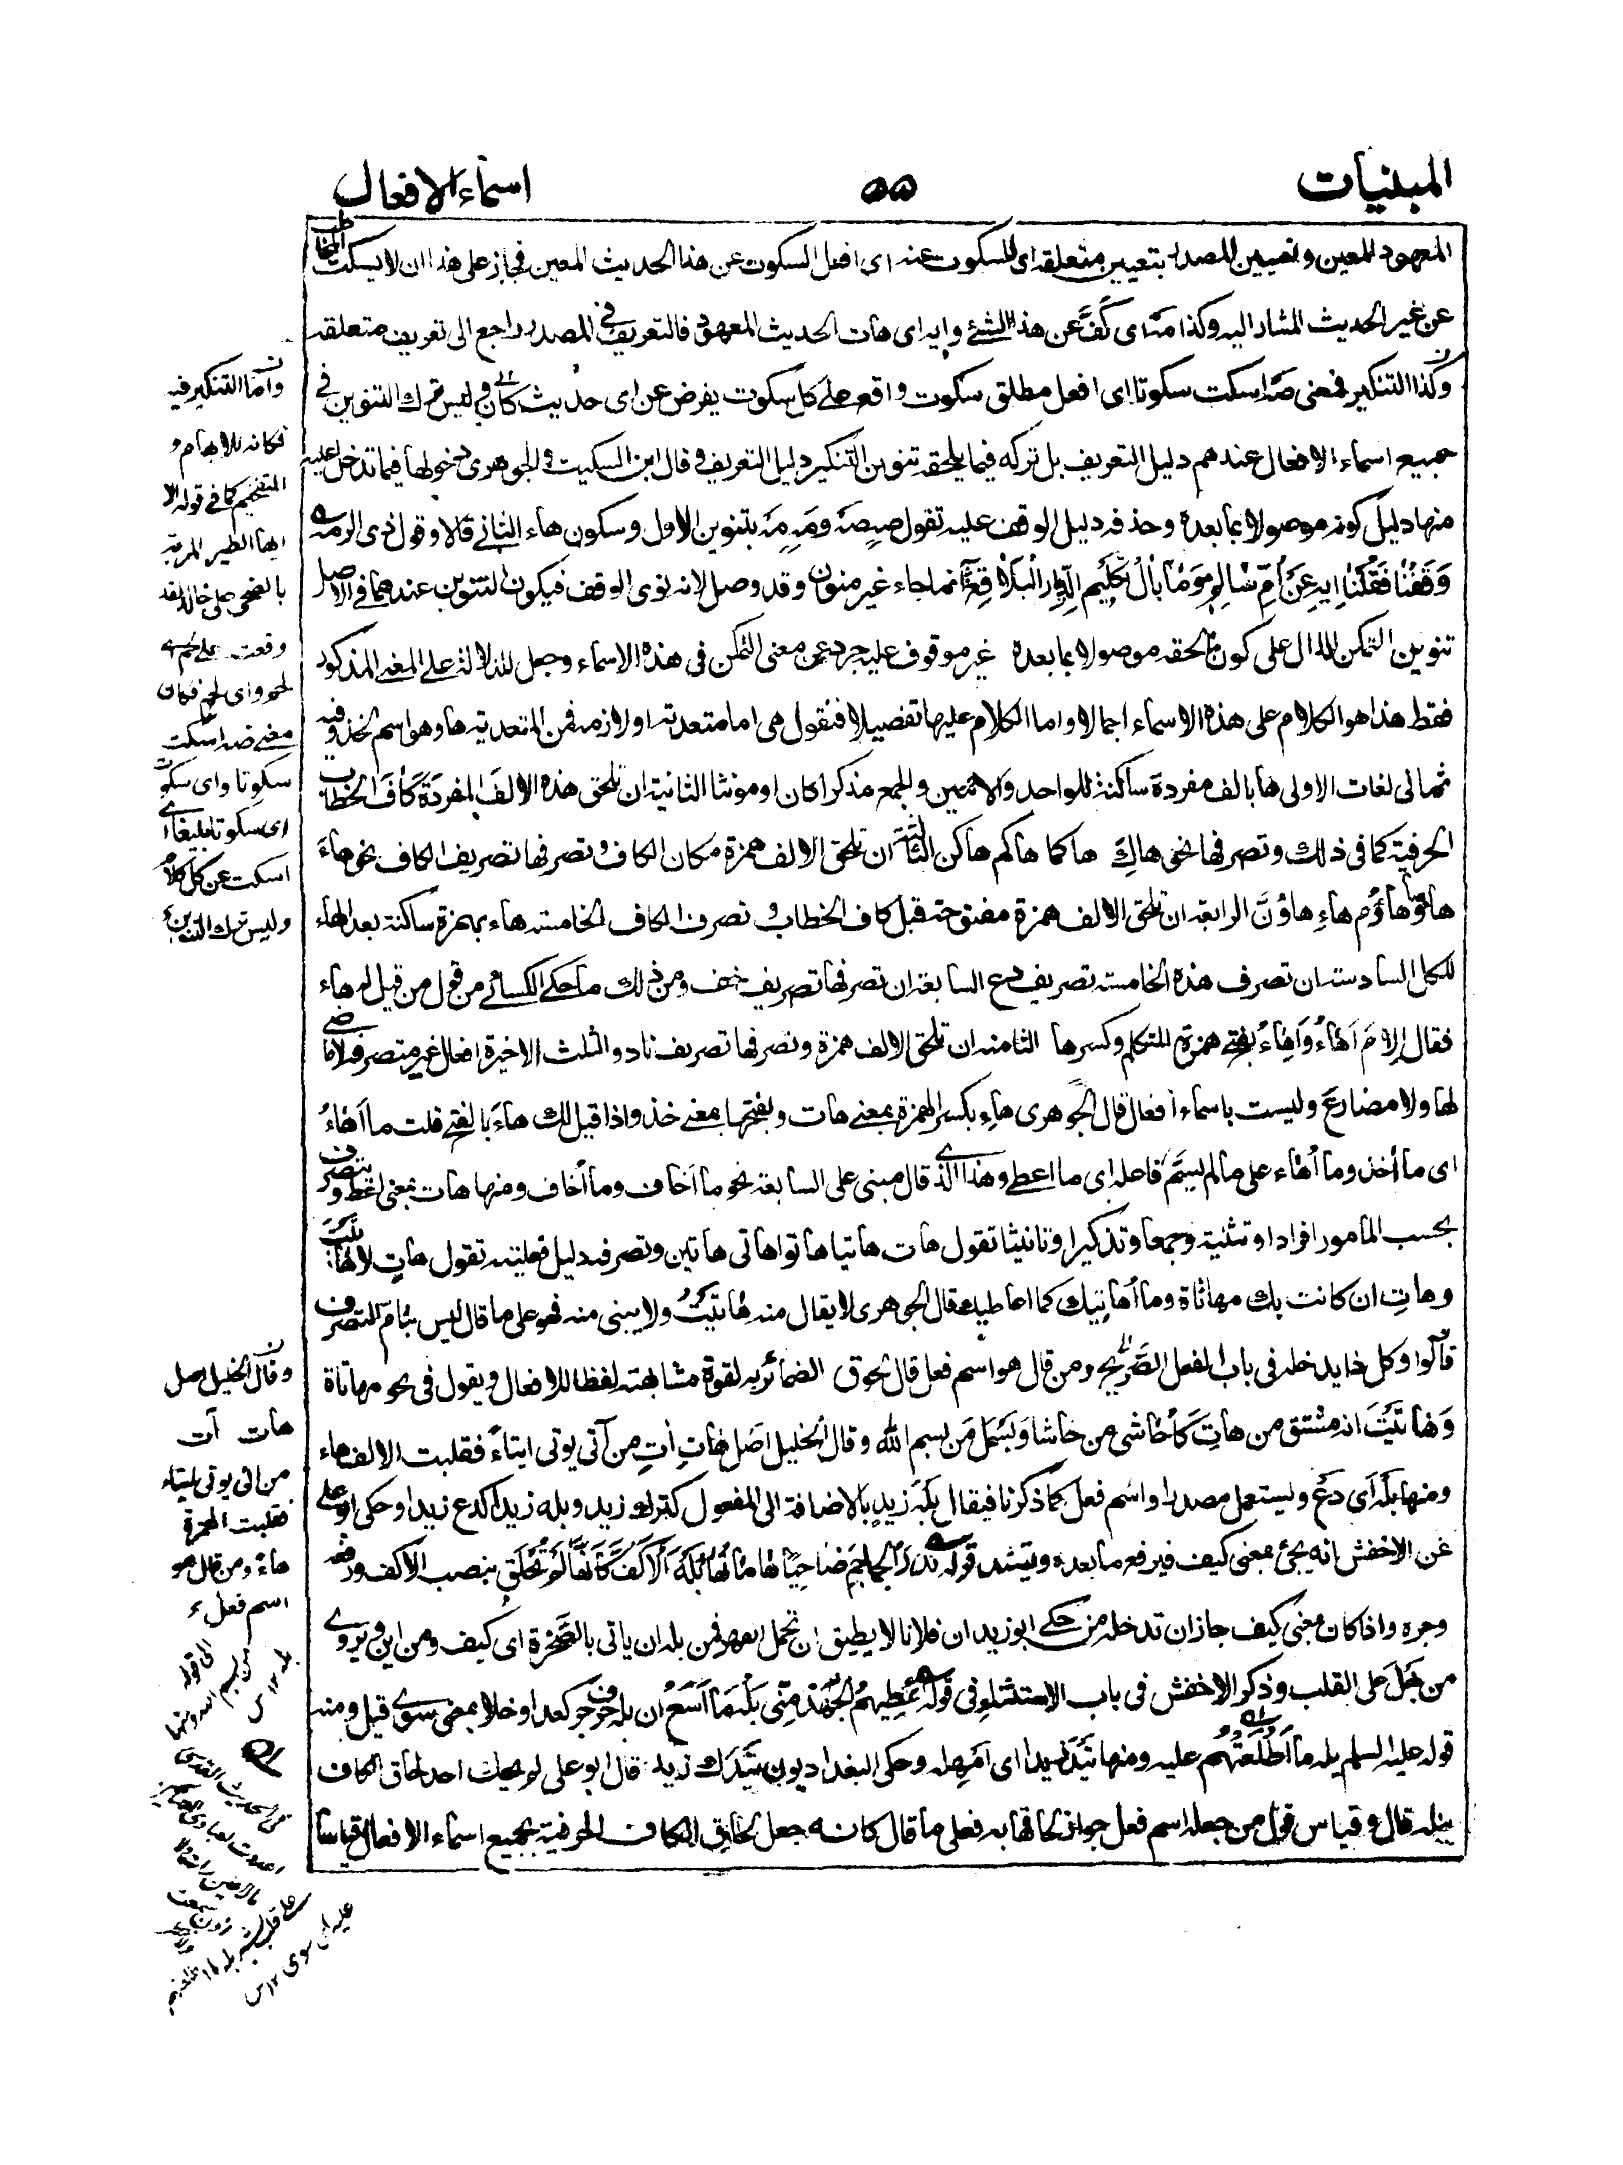 المبنيات
۵۵
اسماء الافعال
المعهود المعين وتعيين المصدر بتعيين متعلقه اى السكوت عنه اى افعل السكوت عن هذا الحديث المعين فجاز على هذا ان لا يسكت المخاطب
عن غير الحديث المشار اليه وكذا مه اى كف عن هذا الشئ وايه اى هات الحديث المعهود فالتعريف فى المصدر راجع الى تعريف متعلقه
وكذا التنكير فمعنى صه اسكت سكوتا اى افعل مطلق سكوت واقع على كل سكوت يفرض عن اى حديث كان وليس ترك التنوين فى
جميع اسماء الافعال عندهم دليل التعريف بل تركه فيما يلحقه تنوين التنكير دليل التعريف وقال ابن السكيت والجوهرى دخولها فيما تدخل عليه
منها دليل كونه موصولا بما بعده وحذفه دليل الوقف عليه تقول صه صه ومه مه بتنوين الاول وسكون هاء الثانى قالا وقول ذى الرمة
وَقَفْنَا فَقُلْنَا اِيهِ عَنْ اُمِّ سَالِمٍ وَمَا بَالُ تَكْلِيمِ الدِّيَارِ الْبَلَاقِعِ انما جاء غير منون وقد وصل لانه نوى الوقف فيكون التنوين عندهما فى الاصل
تنوين التمكن الدال على كون ما لحقه موصولا بما بعده غير موقوف عليه جرد عن معنى التمكن فى هذه الاسماء وجعل للدلالة على المعنى المذكور
فقط هذا هو الكلام على هذه الاسماء اجمالا واما الكلام عليها تفصيلا فنقول هى اما متعدية او لازمة فمن المتعدية ها وهو اسم لخذ وفيه
ثمانى لغات الاولى ها بالف مفردة ساكنة للواحد والاثنين والجمع مذكرا كان او مونثا الثانية ان تلحق هذه الالف المفردة كاف الخطاب
الحرفية كما فى ذلك وتصرفها نحو هاك هاكما هاكم هاكن الثالثة ان تلحق الالف همزة مكان الكاف وتصرفها تصريف الكاف نحو هاءَ
هاؤما هاؤم هاءِ هاؤنَّ الرابعة ان تلحق الالف همزة مفتوحة قبل كاف الخطاب وتصرف الكاف الخامسة هاء بهمزة ساكنة بعد الهاء
للكل السادسة ان تصرف هذه الخامسة تصريف دع السابعة ان تصرفها تصريف خف ومن ذلك ما حكى الكسائى من قول من قيل له هاء
فقال الام اَهاءُ واِهاءُ بفتح همزة المتكلم وكسرها الثامنة ان تلحق الالف همزة وتصرفها تصريف ناد والثلث الاخيرة افعال غير متصرفة لا ماضى
لها ولا مضارع وليست باسماء افعال قال الجوهرى هاءِ بكسر الهمزة بمعنى هات وبفتحها بمعنى خذ واذا قيل لك هاءَ بالفتح قلت ما اَهاءُ
اى ما آخذ وما اُهاء على ما لم يسم فاعله اى ما اعطى وهذا الذى قال مبنى على السابعة نحو ما اَخاف وما اُخاف ومنها هات بمعنى اعط ويتصرف
بحسب المأمور افرادا وتثنية وجمعا وتذكيرا وتانيثا تقول هات هاتيا هاتوا هاتى هاتين وتصرفه دليل فعليته تقول هات لا هاتيت
وهاتِ ان كانت بك مهاتاة وما اُهاتيك كما اعاطيك وقال الجوهرى لا يقال منه هاتيت ولا يبنى منه فهو على ما قال ليس بتام التصرف
قالوا وكل ذا يدخله فى باب الفعل الصريح ومن قال هو اسم فعل قال لحوق الضمائر به لقوة مشابهته لفظا للافعال ويقول فى نحو مهاتاة
وهاتيت انه مشتق من هاتِ كاُحاشى من حاشا وبَسْمَلَ من بسم الله وقال الخليل اصل هات اٰتِ من آتى يوتى ايتاءً فقلبت الالف هاء
ومنها بله اى دع ويستعمل مصدرا واسم فعل كما ذكرنا فيقال بله زيدٍ بالاضافة الى المفعول كترك زيد وبله زيدا كدع زيدا وحكى ابو على
عن الاخفش انه يجئ بمعنى كيف فيرفع ما بعده وينشد قوله تَذَرُ الْجَمَاجِمَ ضَاحِيًا هَامَاتُهَا بَلْهَ الْاَكُفَّ كَأَنَّهَا لَمْ تُخْلَقِ بنصب الاكف ورفعه
وجره واذا كان بمعنى كيف جاز ان تدخله من حكى ابو زيد ان فلانا لا يطيق ان يحمل الفهر فمن بله ان ياتى بالصخرة اى كيف ومن اين ويروى
من بَهْلَ على القلب وذكر الاخفش فى باب الاستثناء فى قوله ان بله حرف جر كعدا وخلا بمعنى سوى قيل ومنه
قوله عليه السلم بله ما اَطْلَعْتُهُم عليه ومنها تَيْدَ زيدا اى اَمْهِله وحكى البغداديون تَيْدَكَ زيدا قال ابو على لم يحك احد لحاق الكاف
ببله قال وقياس قول من جعله اسم فعل جواز لحاقها به فعلى ما قال كانه جعل لحاق الكاف الحرفية بجميع اسماء الافعال قياسا
واما التنكير فيه
فكانه للابهام و
التفخيم كما فى قوله الا
ايها الطير المربة
بالضحى على خالد لقد
وقعت على لحم
لحم واى لحم فكان
معنى صه اسكت
سكوتا واى سكوت
اى سكوتا بليغا اى
اسكت عن كل كلام
وليس ترك التنوين
وقال الخليل اصل
هات آت
من اتى يوتى ايتاء
فقلبت الهمزة
هاء ومن قال هو
اسم فعل
الى قوله
من بسم الله ومنها
بله ١٢ س